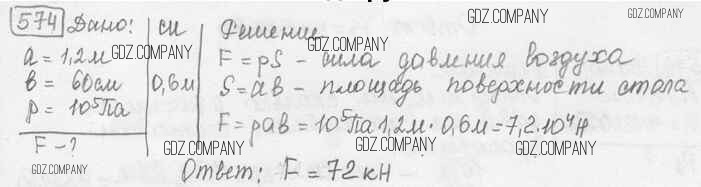 574 Дано: | си | Решение
a = 1,2 м
b = 60 см | 0,6 м
p = 10⁵ Па
F - ?
F = pS - сила давления воздуха
S = ab - площадь поверхности стола
F = pab = 10⁵ Па 1,2 м · 0,6 м = 7,2·10⁴ Н
Ответ: F = 72 кН
GDZ.COMPANY
GDZ.COMPANY
GDZ.COMPANY
GDZ.COMPANY
GDZ.COMPANY
GDZ.COMPANY
GDZ.COMPANY
GDZ.COMPANY
GDZ.COMPANY
GDZ.COMPANY
GDZ.COMPANY